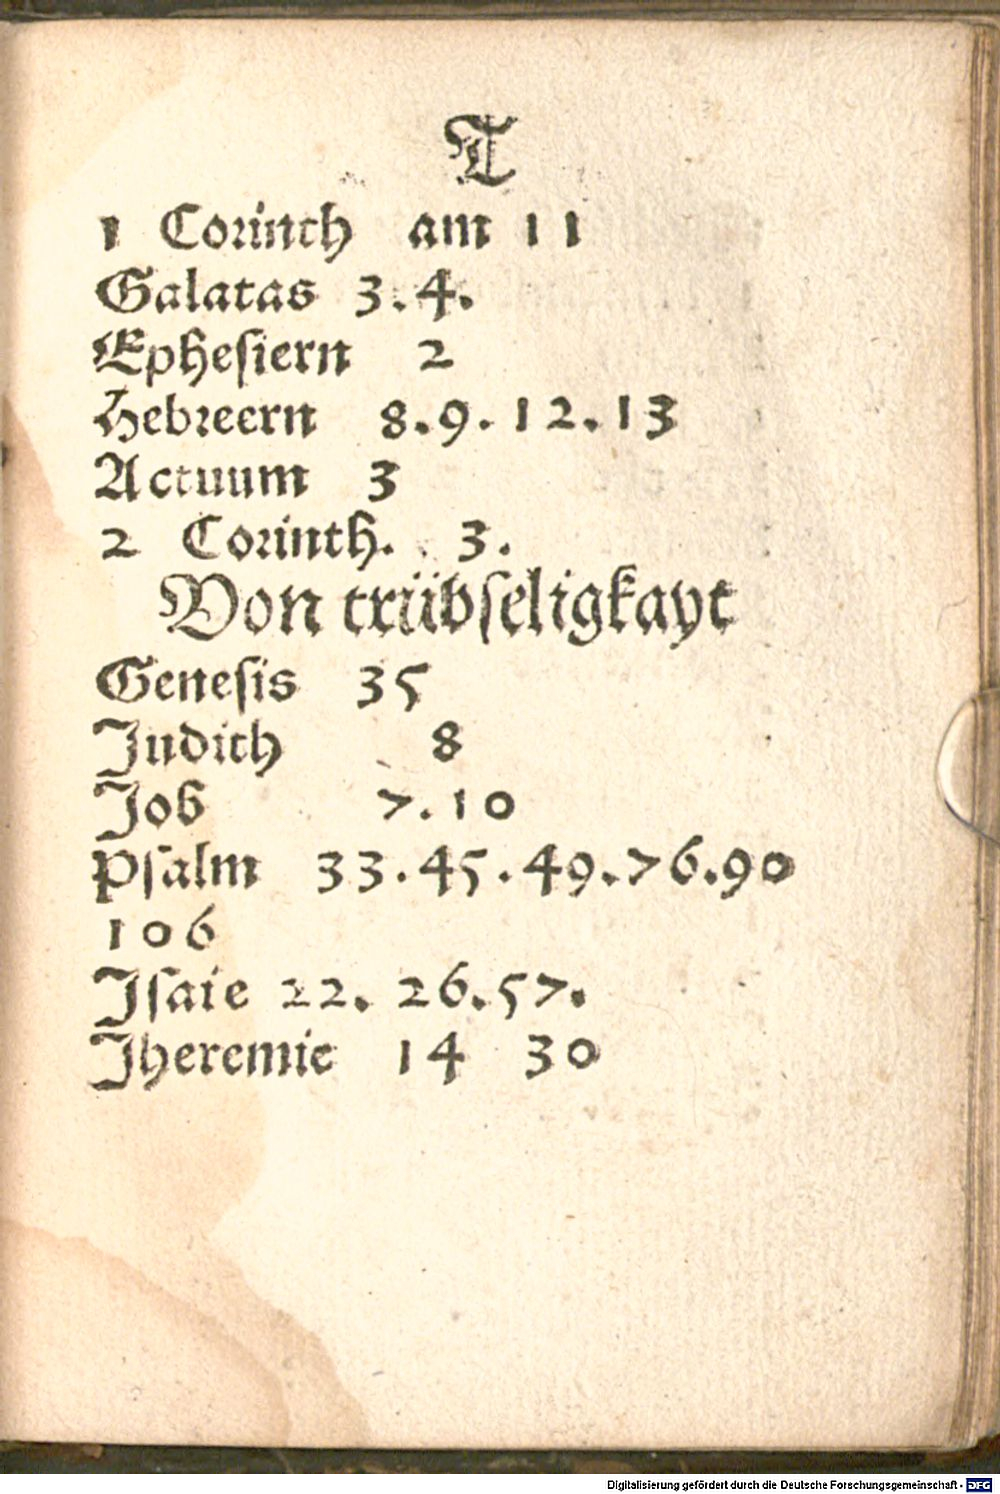 T
1 Corinth am 11
Galatas 3.4.
Ephesiern 2
Hebreern 8.9.12.13
Actuum 3
2 Corinth. 3.
Von trübseligkayt
Genesis 35
Judith 8
Job 7.10
Psalm 33.45.49.76.90
106
Jsaie 22. 26.57.
Jheremie 14 30
Digitalisierung gefördert durch die Deutsche Forschungsgemeinschaft - DFG